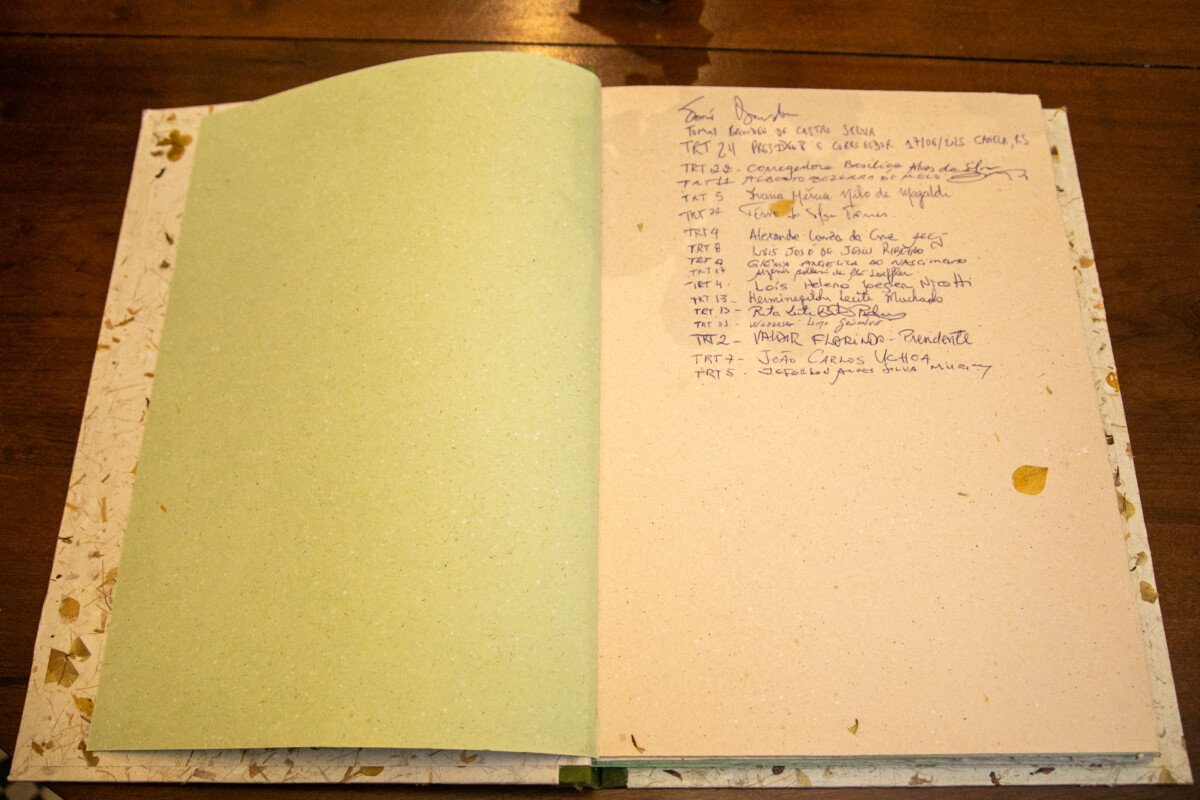 TOMÁS BAWDEN DE CASTRO SILVA
TRT 24 PRESIDENTE E CORREGEDOR 17/06/2025 CANELA, RS
TRT 22 - Corregedora Basiliça Alves da Silva
TRT 11 ALBERTO BEZERRA DE MELO
TRT 5 Ivana Mércia Nilo de Magaldi
TRT
TRT 9 Alexandre Corrêa da Cruz
TRT 8 LUIS JOSÉ DE JESUS RIBEIRO
TRT 9 ANGELICA DO NASCIMENTO
TRT 17
TRT 4 Loís Helena Nicotti
TRT 13 - Herminegilda Leite Machado
TRT 13 - Rita Leite
TRT
TRT 2 - VALDIR FLORINDO - Presidente
TRT 7 - JOÃO CARLOS UCHOA
TRT 5 - JEFERSON ALVES SILVA MURICY